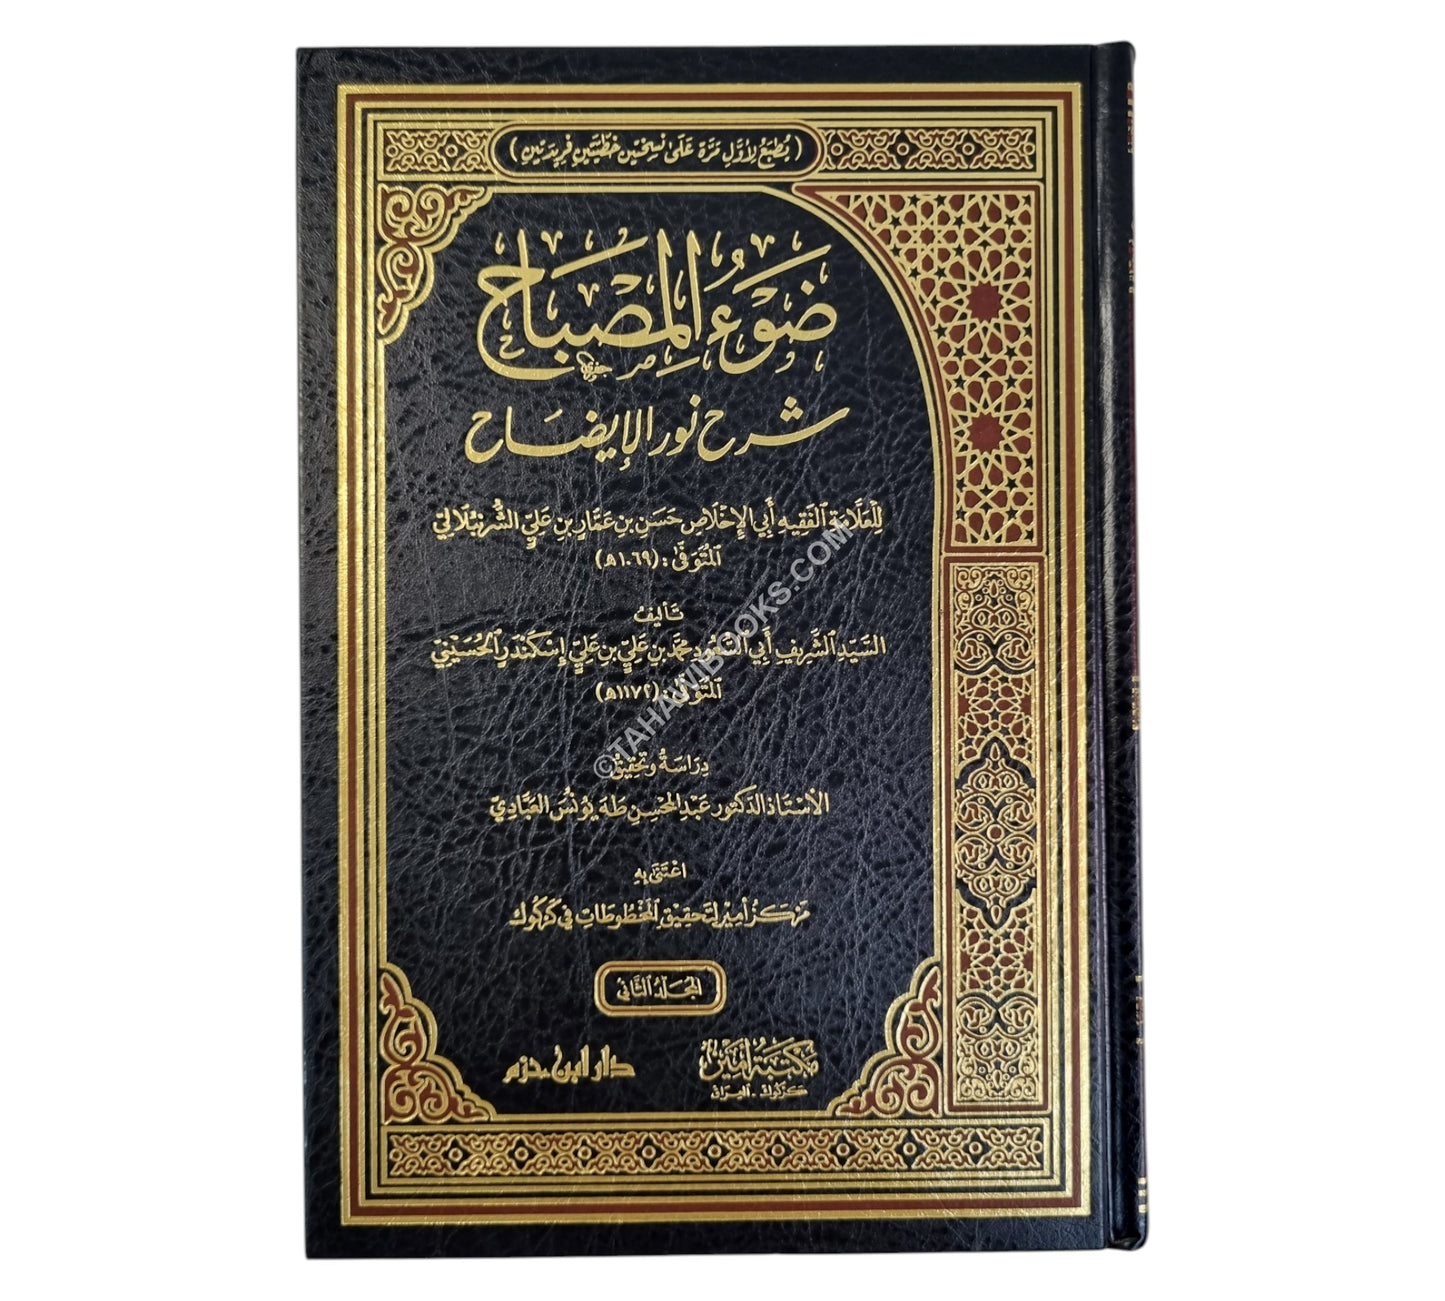 ( يُطبَعُ لأوَّلِ مَرَّة عَلَى نُسختَين خَطِّيتَين فَرِيدَتَين )
ضَوْءُ المِصْبَاح
شرح نور الإيضَاح
لِلعَلَّامَةِ الفَقِيهِ أَبِي الإِخْلَاصِ حَسَنِ بنِ عَمَّارِ بنِ عَلِيٍّ الشُّرُنبُلَالِيّ
المُتَوَفَّى : (١٠٦٩هـ)
تَأليفُ
السَّيِّدِ الشَّرِيفِ أَبِي السُّعُودِ مُحَمَّدِ بنِ عَلِيِّ بنِ عَلِيٍّ إِسْكَنْدَرِ الحُسَيْنِيّ
المُتَوَفَّى : (١١٧٢هـ)
دِرَاسَةُ وتَحقِيقُ
الأُسْتَاذ الدكتور عَبدِ المُحْسِنِ طَهَ يُونُسَ العَبَّادِيّ
اعْتَنَى بِهِ
مَركَزُ أَمِير لِتَحقِيقِ المَخْطُوطَاتِ في كَركُوك
المجَلدُ الثَّاني
مكتبة أمير
كركوك - العراق
دار ابن حزم
©TAHAWIBOOKS.COM